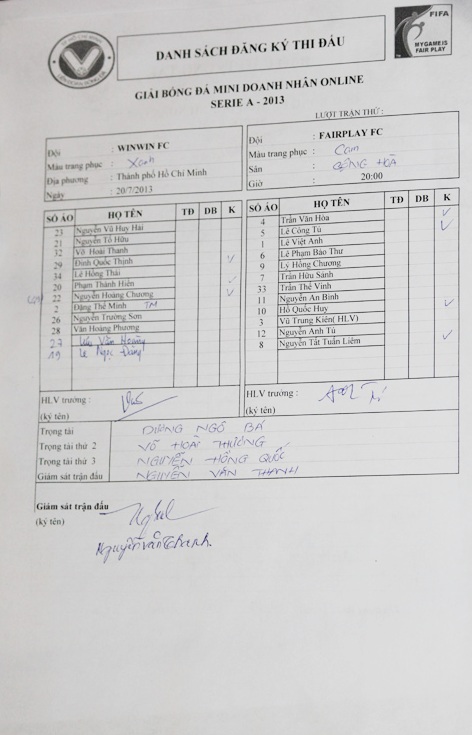 FIFA
MY GAME IS
FAIR PLAY
DANH SÁCH ĐĂNG KÝ THI ĐẤU
GIẢI BÓNG ĐÁ MINI DOANH NHÂN ONLINE
SERIE A - 2013
LƯỢT TRẬN THỨ :
Đội : WINWIN FC
Màu trang phục : Xanh
Địa phương : Thành phố Hồ Chí Minh
Ngày : 20/7/2013
Đội : FAIRPLAY FC
Màu trang phục : Cam
Sân : CỘNG HOÀ
Giờ : 20:00
SỐ ÁO HỌ TÊN TĐ DB K
23 Nguyễn Vũ Huy Hải
21 Nguyễn Tố Hữu
32 Võ Hoài Thanh
29 Đinh Quốc Thịnh
34 Lê Hồng Thái
20 Phạm Thành Hiển
22 Nguyễn Hoàng Chương
2 Đặng Thế Minh TM
26 Nguyễn Trường Sơn
28 Văn Hoàng Phương
27 Văn Hoàng
19 Le Ngọc Đáng
SỐ ÁO HỌ TÊN TĐ DB K
4 Trần Văn Hòa
5 Lê Công Tú
1 Lê Việt Anh
6 Lê Phạm Bảo Thư
9 Lý Hồng Chương
7 Trần Hữu Sánh
33 Trần Thế Vinh
11 Nguyễn An Bình
10 Hồ Quốc Huy
3 Vũ Trung Kiên( HLV)
12 Nguyễn Anh Tú
8 Nguyễn Tất Tuấn Liêm
HLV trưởng :
(ký tên)
HLV trưởng :
(ký tên)
Trọng tài DƯƠNG NGÔ BÁ
Trọng tài thứ 2 VÕ HOÀI THƯƠNG
Trọng tài thứ 3 NGUYỄN HỒNG QUỐC
Giám sát trận đấu NGUYỄN VĂN THANH
Giám sát trận đấu
(ký tên)
Nguyễn Văn Thanh